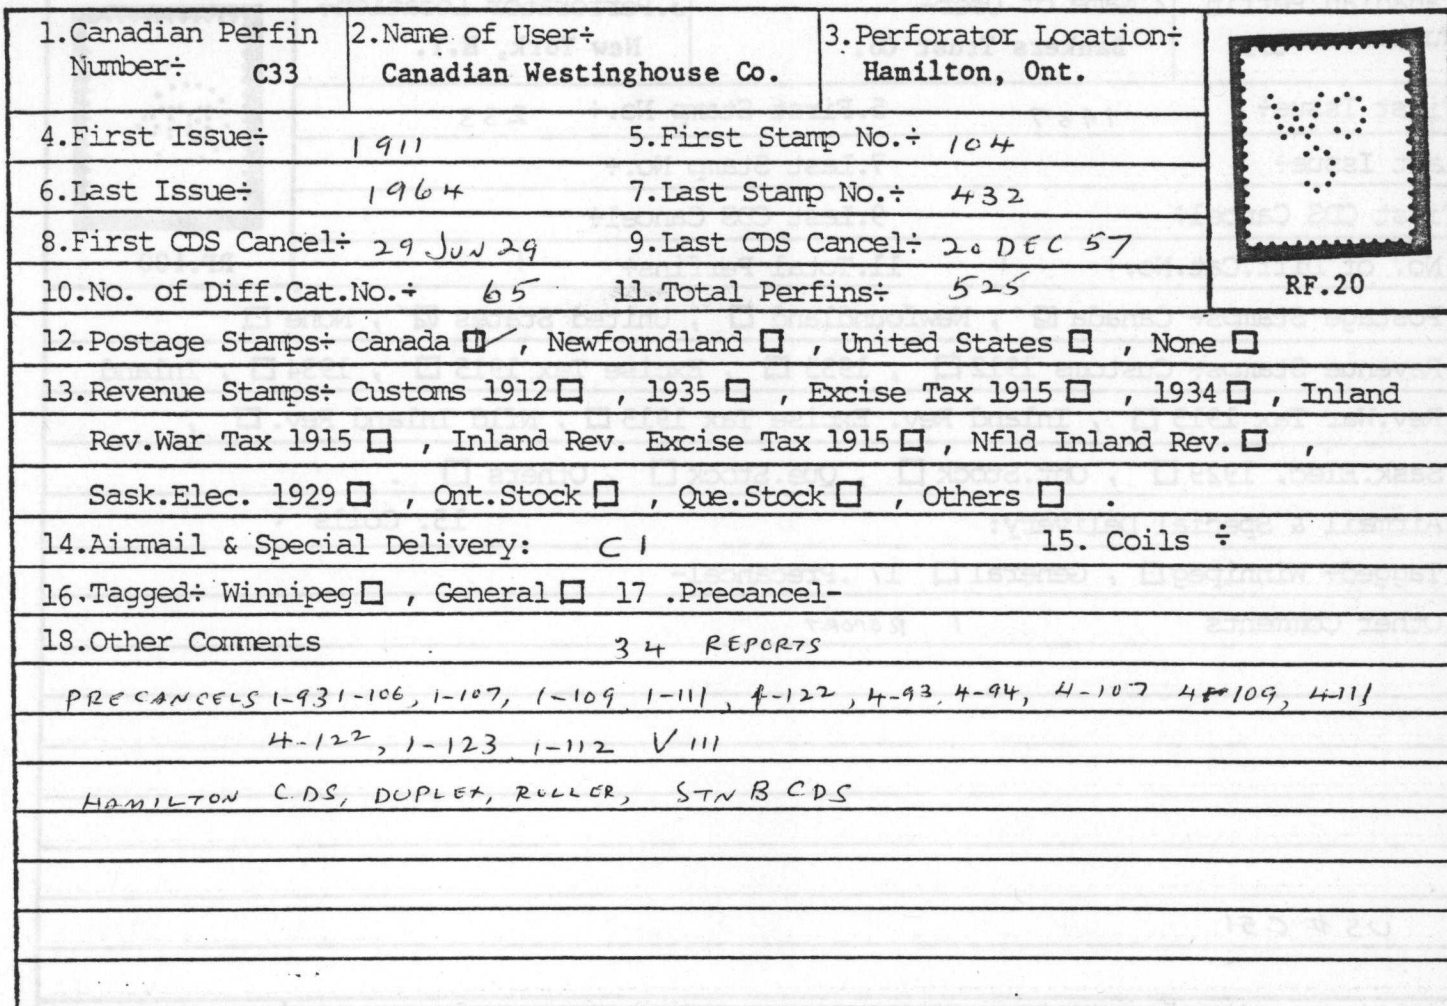 1.Canadian Perfin Number÷ C33
2.Name of User÷ Canadian Westinghouse Co.
3.Perforator Location÷ Hamilton, Ont.
W C
o
RF.20
4.First Issue÷ 1911 5.First Stamp No.÷ 104
6.Last Issue÷ 1964 7.Last Stamp No.÷ 432
8.First CDS Cancel÷ 29 JUN 29 9.Last CDS Cancel÷ 20 DEC 57
10.No. of Diff.Cat.No.÷ 65 11.Total Perfins÷ 525
12.Postage Stamps÷ Canada ☑, Newfoundland ☐, United States ☐, None ☐
13.Revenue Stamps÷ Customs 1912 ☐, 1935 ☐, Excise Tax 1915 ☐, 1934 ☐, Inland
Rev.War Tax 1915 ☐, Inland Rev. Excise Tax 1915 ☐, Nfld Inland Rev. ☐,
Sask.Elec. 1929 ☐, Ont.Stock ☐, Que.Stock ☐, Others ☐.
14.Airmail & Special Delivery: C1 15. Coils ÷
16.Tagged÷ Winnipeg ☐, General ☐ 17 .Precancel-
18.Other Comments 34 REPORTS
PRECANCELS 1-93 1-106, 1-107, 1-109, 1-111, 1-122, 4-93, 4-94, 4-107 4-109, 4-111
4-122, 1-123 1-112 V 111
HAMILTON CDS, DUPLEX, ROLLER, STN B CDS